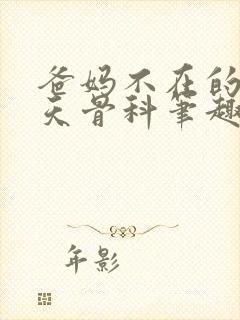 爸妈不在的
天骨科笔趣
年影